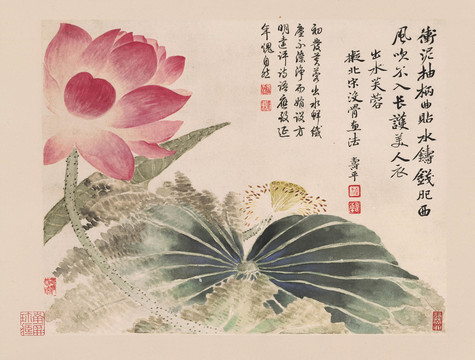 衝泥抽柄曲貼水鑄錢肥西
風吹不入長護美人衣
出水芙蓉
擬北宋沒骨畫法 壽平
初發芙蓉出水鮮纖
塵不染淨而娟設方
明遠評詩語應教延
年愧自然